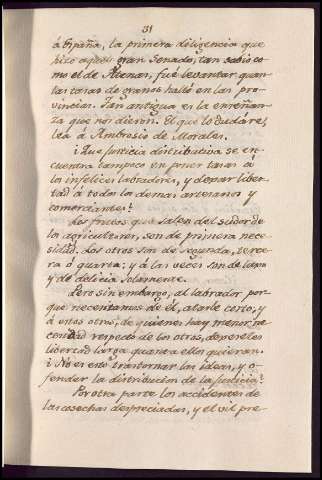 31
á España, la primera diligencia que
hizo aquel gran Senado, tan sabio co-
mo el de Atenas, fué levantar quan-
tas tasas de granos halló en las pro-
vincias. Tan antigua es la enseñan-
za que nos dieron. El que lo dudáre,
lea á Ambrosio de Morales.
¿ Que Justicia distributiva se en-
cuentra tampoco en poner tasas á
los infelices labradores, y dejar liber-
tad á todos los demas artesanos y
comerciantes?
Los frutos que salen del sudor de
los agricultores, son de primera nece-
sidad. Los otros son de segunda, terce-
ra ó quarta; y á las veces son de lujo
y de delicia solamente.
Pero sin embargo, al labrador, por-
que necesitamos de él, atarle corto, y
á estos otros, de quienes hay menor ne-
cesidad respecto de los otros, ponerles
libertad larga quanta ellos quieran.
¿ No es esto trastornar las ideas, y o-
fender la distribucion de la justicia?
Por otra parte los accidentes de
las cosechas despreciadas, y el vil pre-